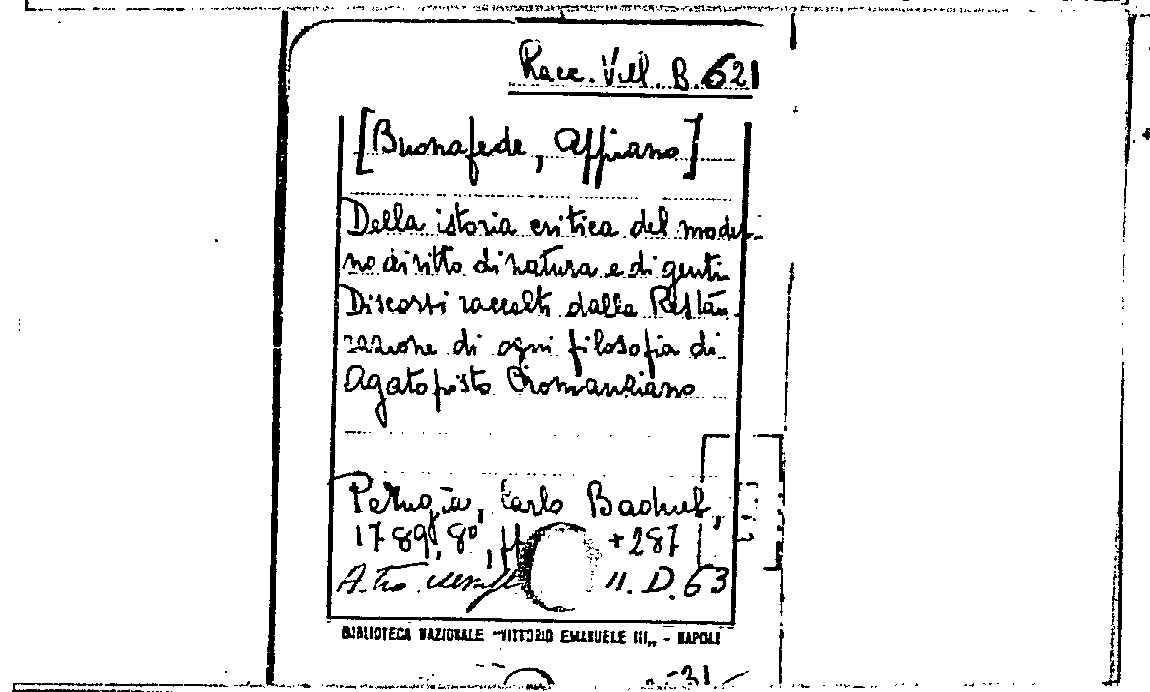 Racc. Vill. B. 621
[Buonafede, Appiano]
Della istoria critica del moder-
no diritto di natura e di genti
Discorsi raccolti dalla Restau-
razione di ogni filosofia di
Agatopisto Cromaziano
Perugia, Carlo Baduel,
1789, 8°, +287
A.tro 11. D. 63
BIBLIOTECA NAZIONALE "VITTORIO EMANUELE III„ - NAPOLI